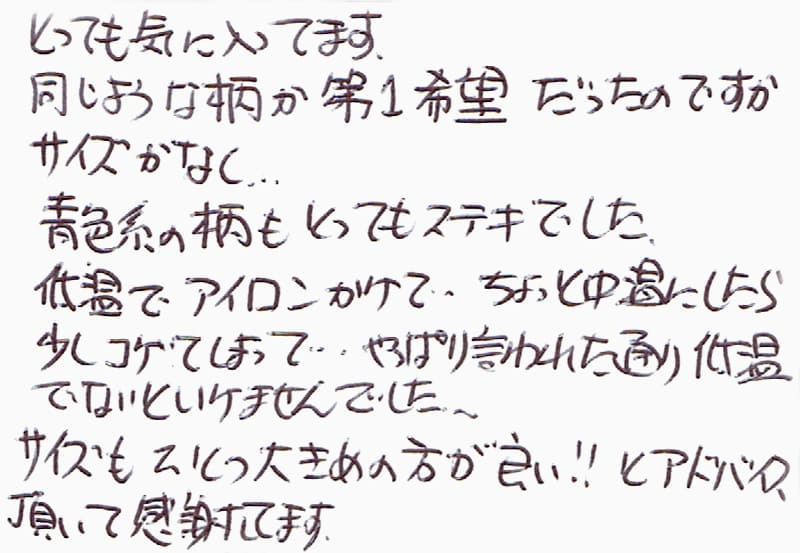 とっても気に入ってます。
同じような柄が第1希望だったのですが
サイズがなく…
青色系の柄もとってもステキでした。
低温でアイロンがけで‥ちょっと中温にしたら
少しコゲてしまって‥やっぱり言われた通り低温
でないといけませんでした。～
サイズもひとつ大きめの方が良い!!とアドバイス
頂いて感謝してます。